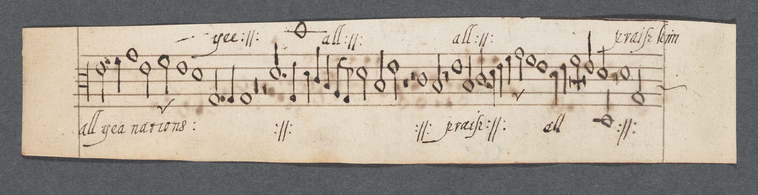 yee :||: all :||: all :||: praise him
all yea nations : :||: :||: praise :||: all :||: